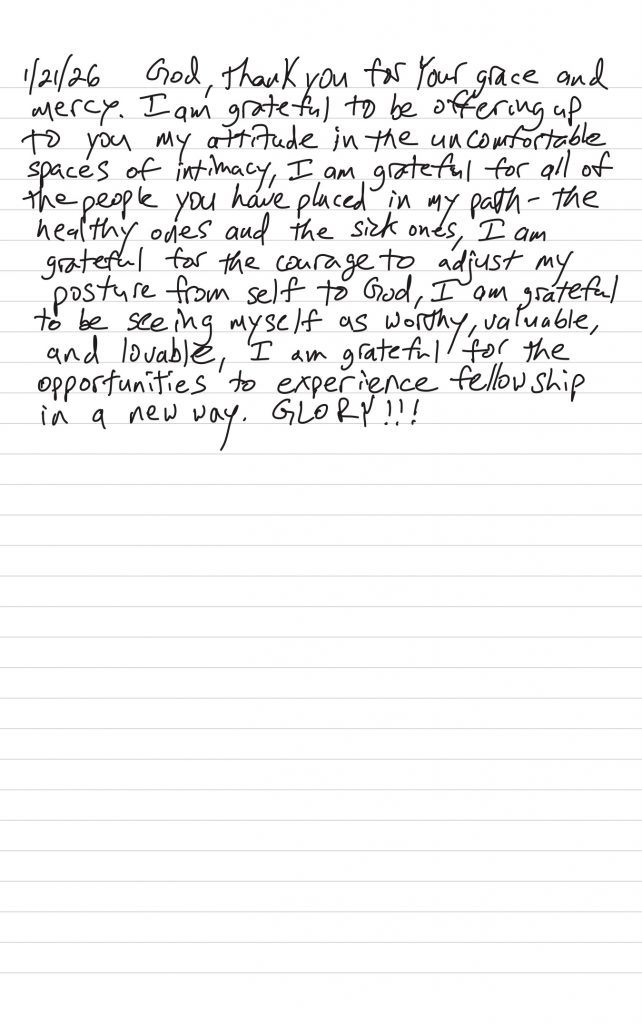 1/21/26 God, thank you for Your grace and
mercy. I am grateful to be offering up
to you my attitude in the uncomfortable
spaces of intimacy, I am grateful for all of
the people you have placed in my path - the
healthy ones and the sick ones, I am
grateful for the courage to adjust my
posture from self to God, I am grateful
to be seeing myself as worthy, valuable,
and lovable, I am grateful for the
opportunities to experience fellowship
in a new way. GLORY!!!